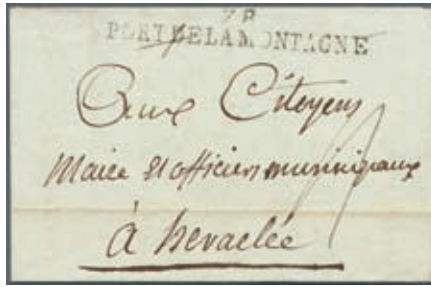 78
PORT DE LA MONTAGNE
Aux Citoyens
Maire et officiers municipaux
à heraclée